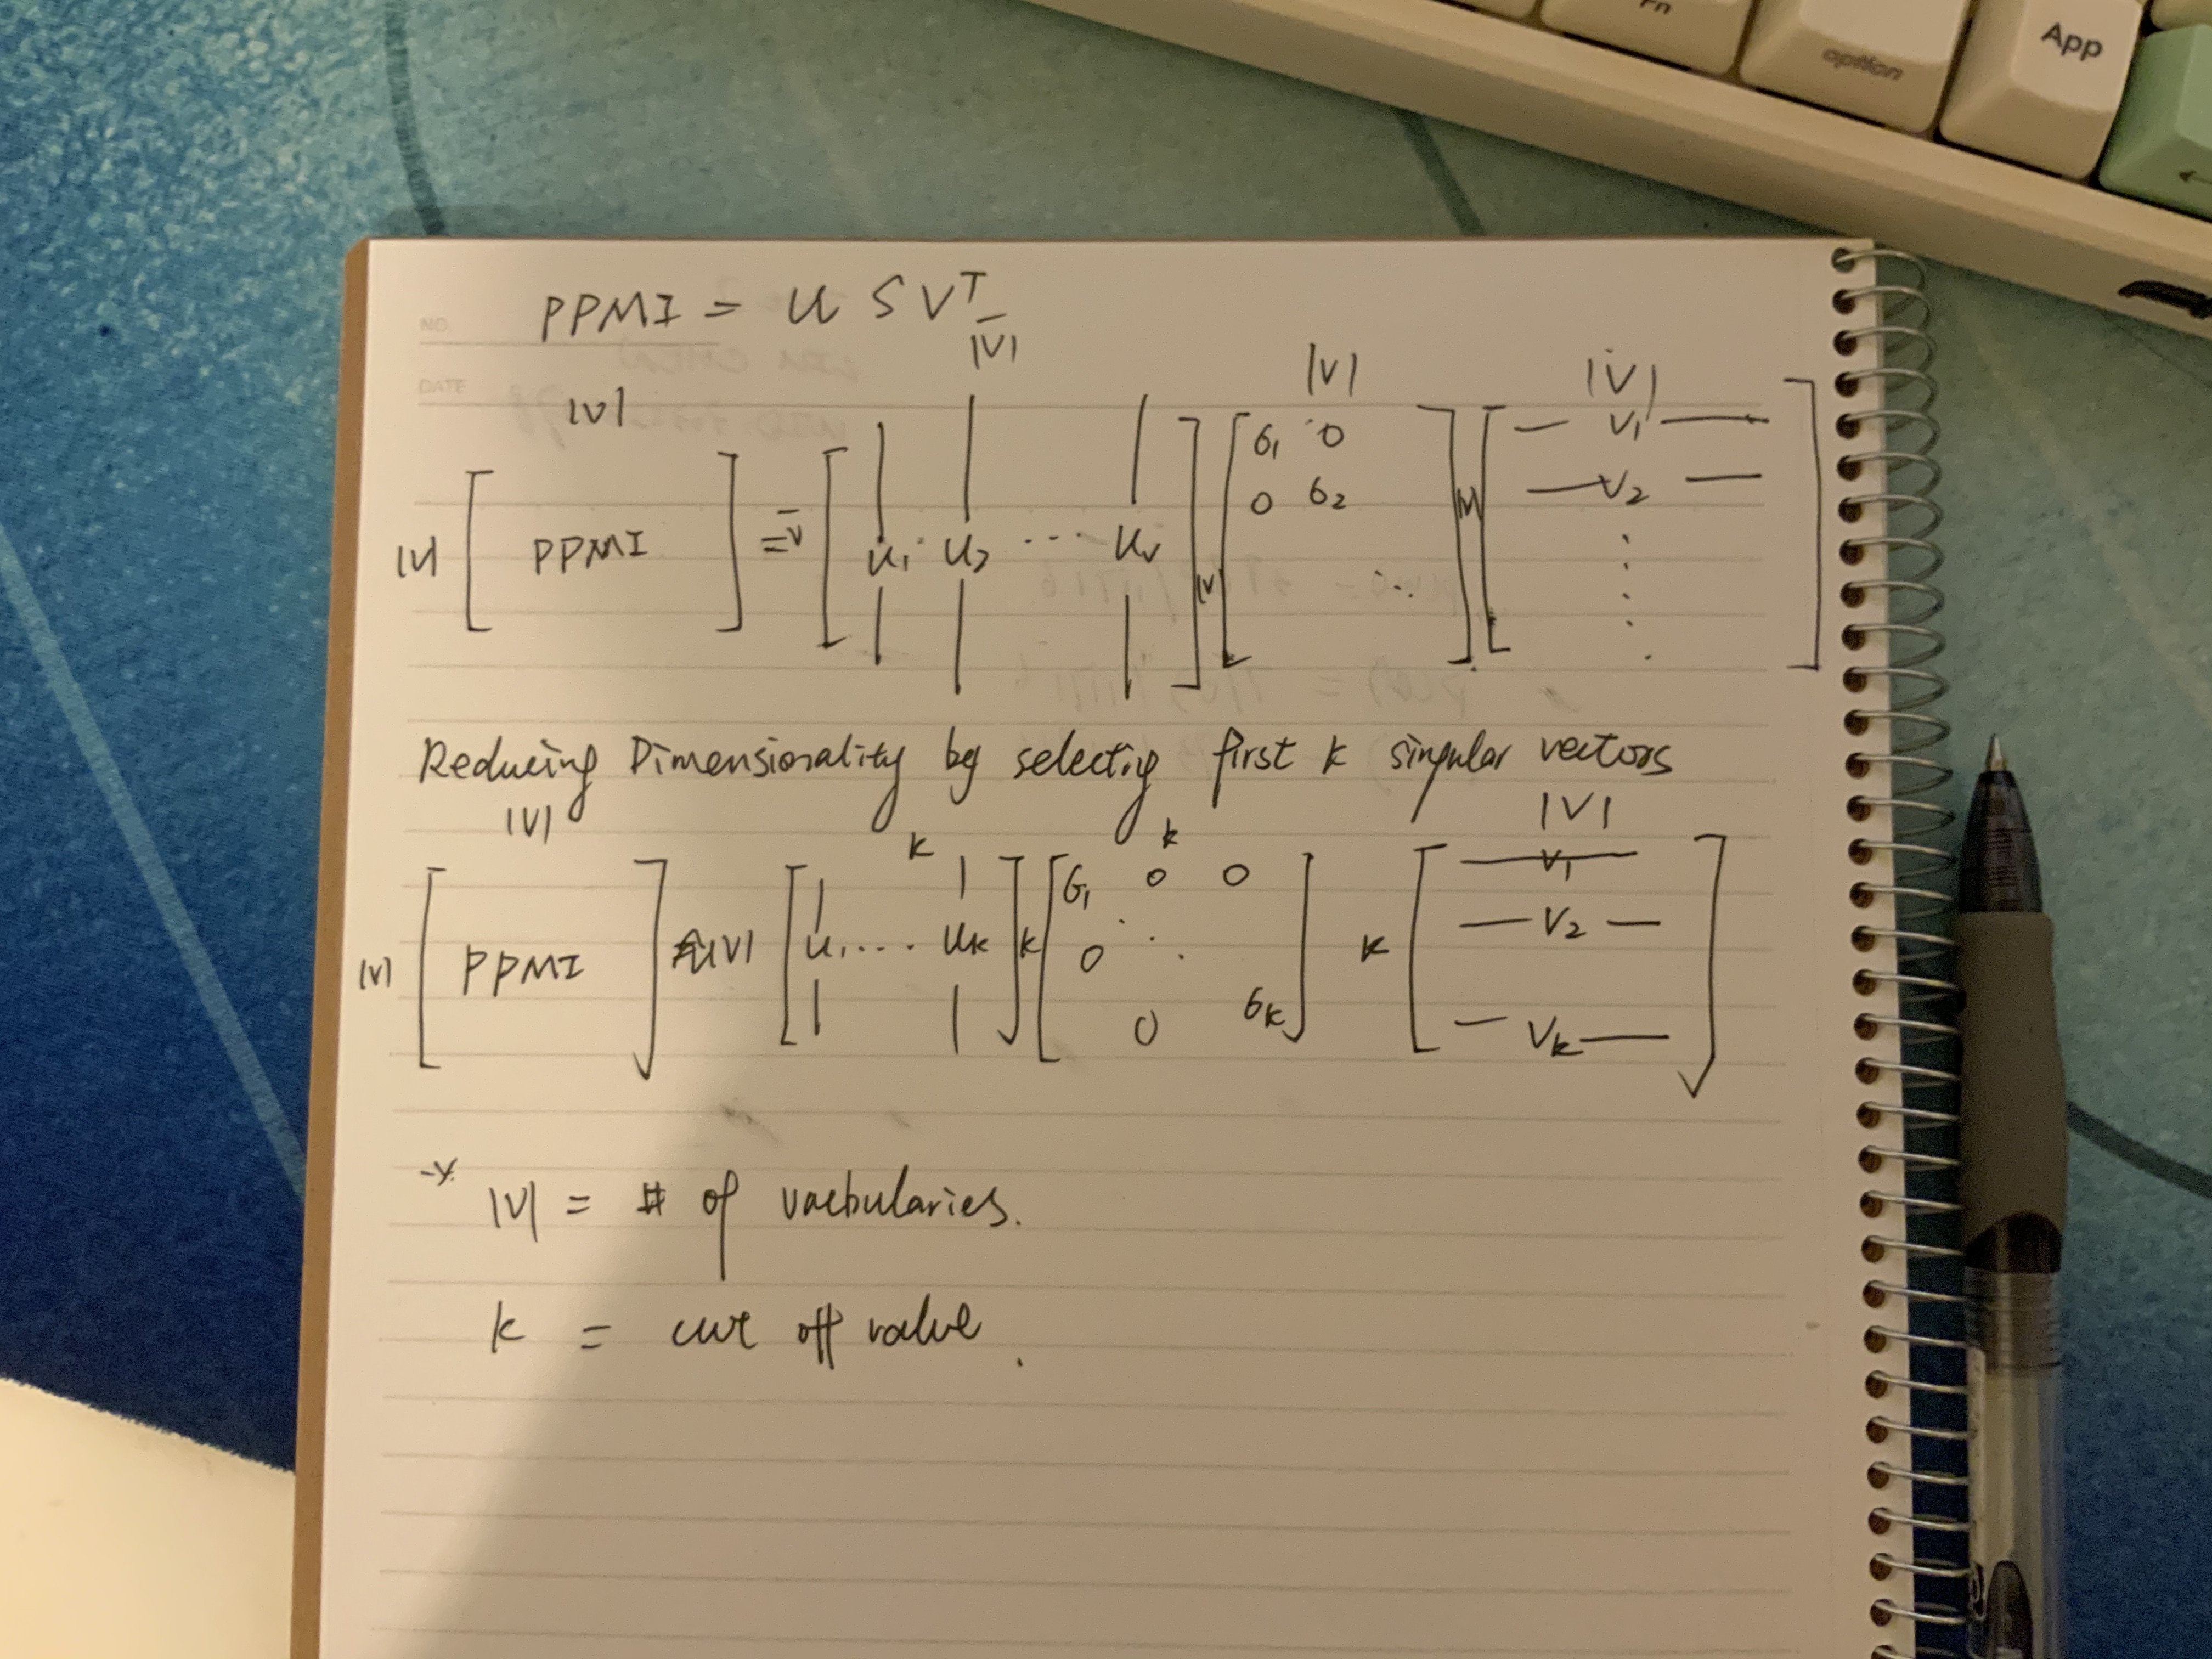 Fn
option
App
PPMI = U S V^T
NO.
DATE
|V| |V| |V| |V|
|V| [ PPMI ] = V [ u₁ · u₂ ··· uᵥ ] |V| [ σ₁ 0 0 σ₂ ⋱ ] |V| [ — v₁ — — v₂ — ⋮ ]
Reducing Dimensionality by selectig first k singular vectors
|V| k k |V|
|V| [ PPMI ] ≈ |V| [ u₁ ···· uₖ ] k [ σ₁ 0 0 0 ⋱ 0 σₖ ] k [ — v₁ — — v₂ — — vₖ — ]
|V| = # of vacbularies.
k = cut off value.